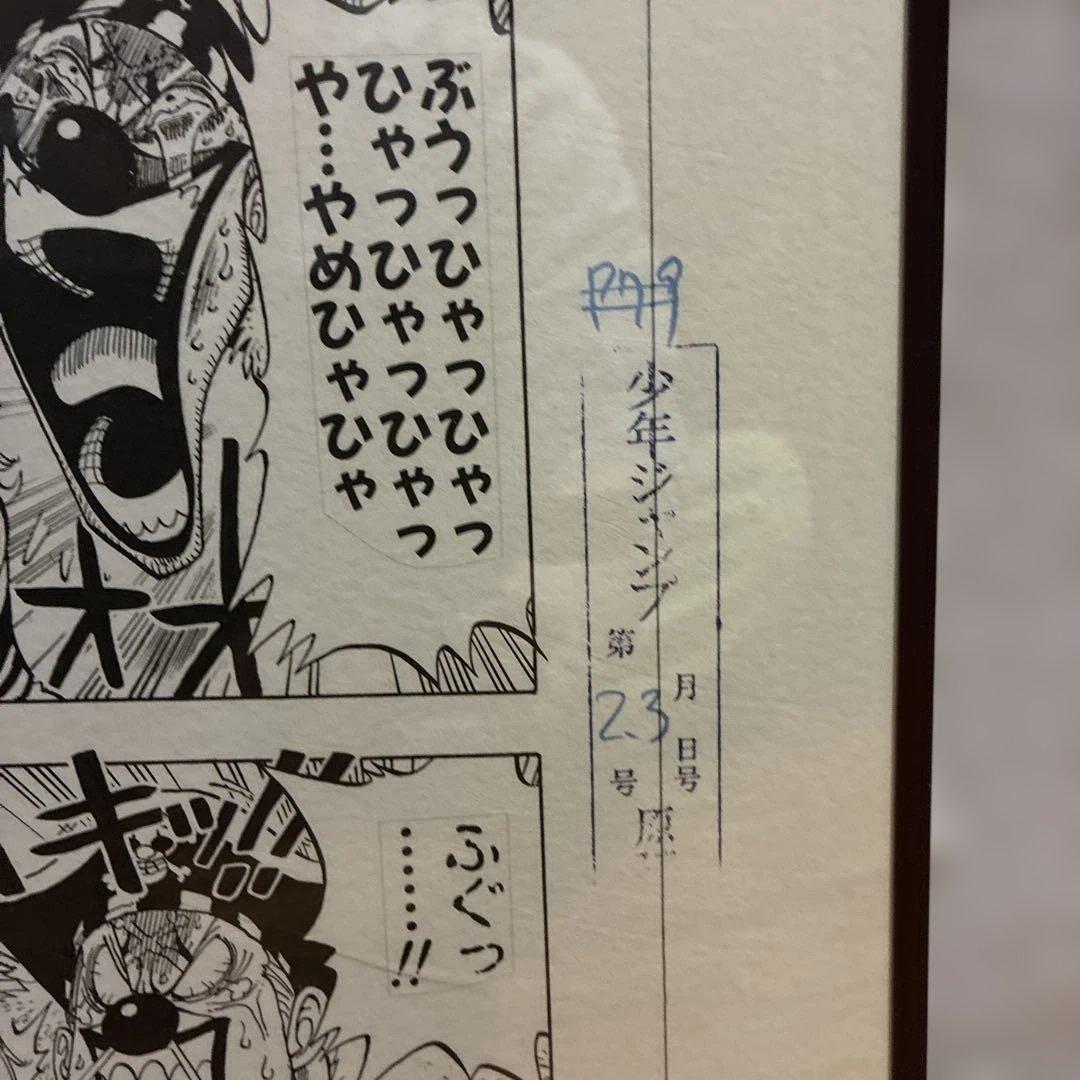 ぶうっひゃっひゃっ
ひゃっひゃっひゃっ
や…やめひゃひゃ
オオ
少年ジャンプ
第
2.3
号
月
日号
ギャ!!
ふぐっ
……!!